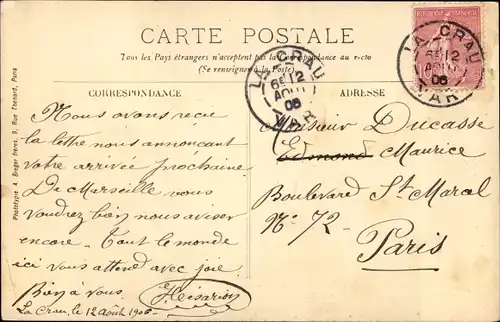 CARTE POSTALE
Tous les Pays étrangers n'acceptent pas la Correspondance au recto
(Se renseigner à la Poste)
CORRESPONDANCE
ADRESSE
Nous avons reçu
la lettre nous annonçant
votre arrivée prochaine.
De Marseille vous
voudrez bien nous aviser
encore. Tout le monde
ici vous attend avec joie.
Bien à vous
La Crau, le 12 Août 1906
Monsieur Ducasse
Edmond Maurice
Boulevard St Marcel
No 72
Paris
Phototypie A. Breger frères, 9, Rue Thénard, Paris
LA CRAU
12
AOUT
06
VAR
LA CRAU
12
AOUT
06
VAR
10